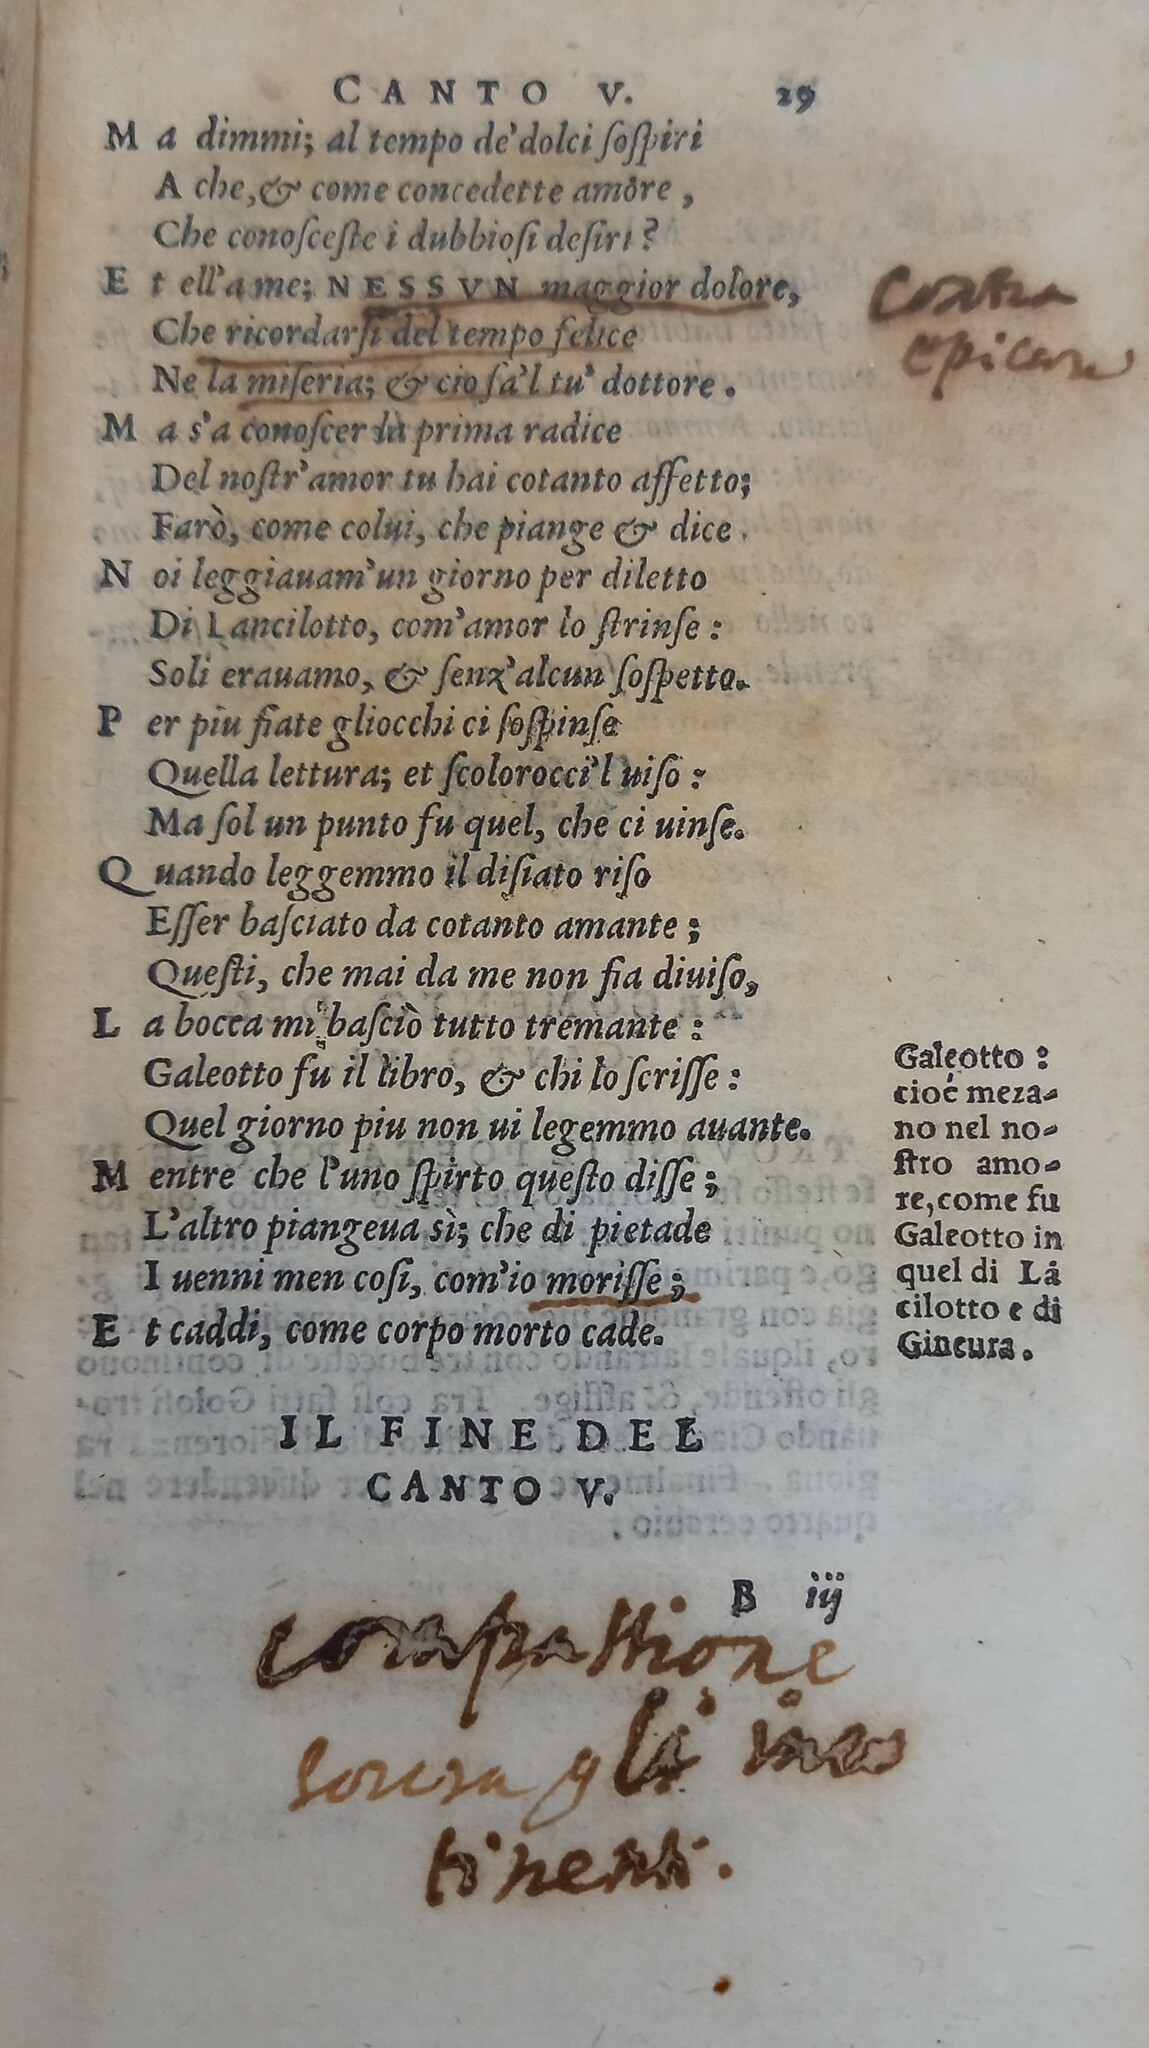 CANTO V. 29
Ma dimmi; al tempo de' dolci ſoſpiri
A che, & come concedette amore,
Che conoſceſte i dubbioſi deſiri?
Et ell'a me; NESSVN maggior dolore,
Che ricordarſi del tempo felice
Ne la miſeria; & cio ſa'l tu' dottore.
Contra
epicuru
Ma s'a conoſcer la prima radice
Del noſtr'amor tu hai cotanto affetto;
Farò, come colui, che piange & dice.
Noi leggiauam'un giorno per diletto
Di Lancilotto, com'amor lo ſtrinſe:
Soli erauamo, & ſenz'alcun ſoſpetto.
Per piu fiate gliocchi ci ſoſpinſe
Quella lettura; et ſcolorocci'l uiſo:
Ma ſol un punto fu quel, che ci uinſe.
Quando leggemmo il diſiato riſo
Eſſer baſciato da cotanto amante;
Queſti, che mai da me non fia diuiſo,
La bocca mi baſciò tutto tremante:
Galeotto fu il libro, & chi lo ſcriſſe:
Quel giorno piu non ui legemmo auante.
Mentre che l'uno ſpirto queſto diſſe;
L'altro piangeua sì; che di pietade
I uenni men coſi, com'io moriſſe;
Et caddi, come corpo morto cade.
Galeotto:
cioé meza-
no nel no-
ſtro amo-
re, come fu
Galeotto in
quel di Lā
cilotto e di
Gineura.
IL FINE DEL
CANTO V.
B iij
compassione
sovra gli incon
tinenti.